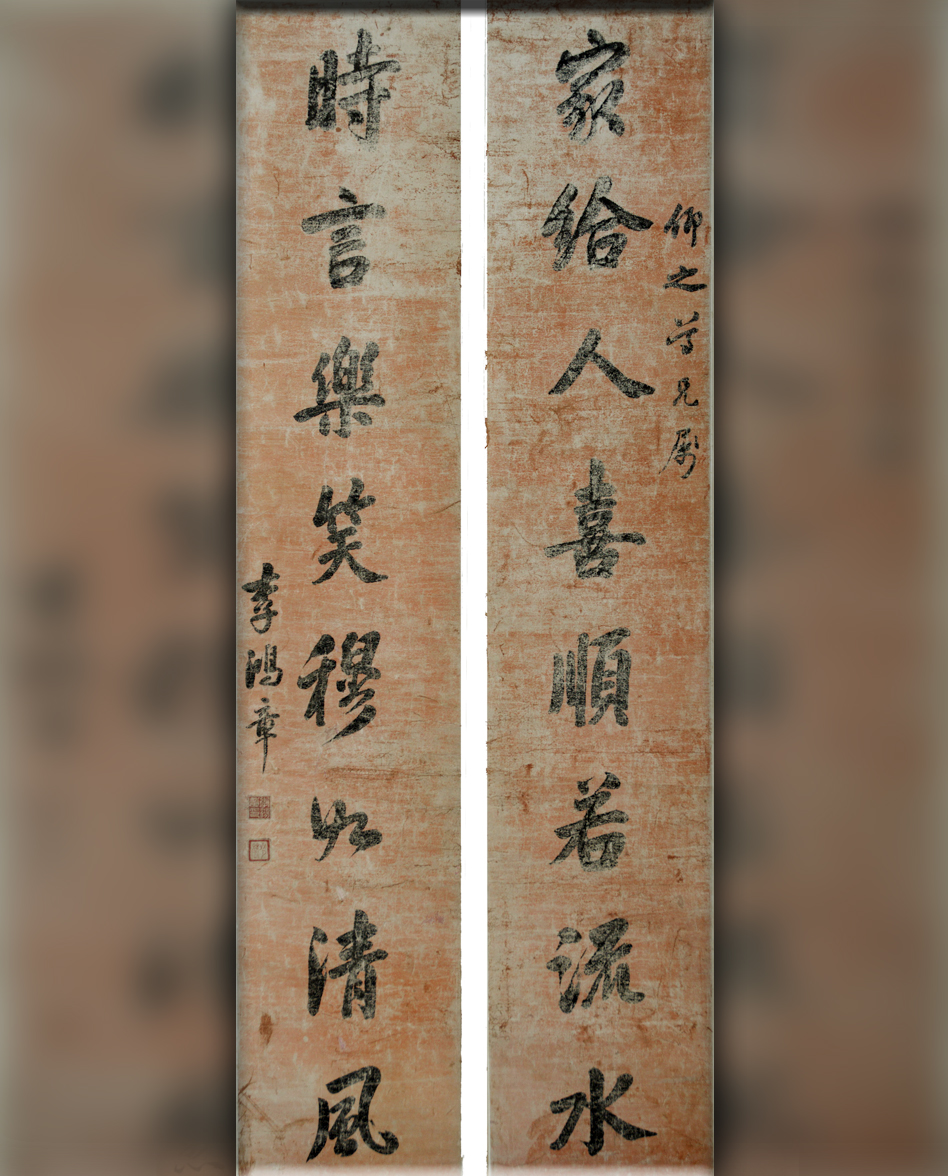 仰之尊兄属
家給人喜順若流水
時言樂笑穆如清風
李鴻章